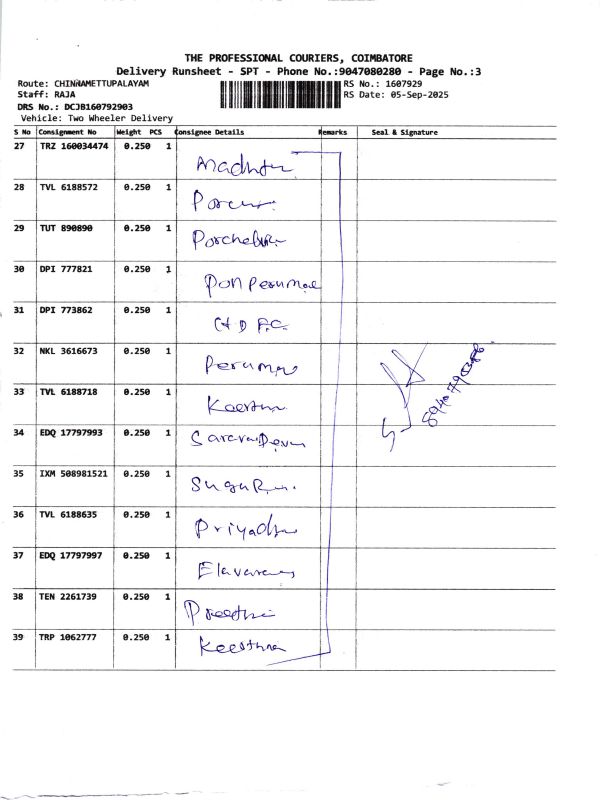 THE PROFESSIONAL COURIERS, COIMBATORE
Delivery Runsheet - SPT - Phone No.:9047080280 - Page No.:3
Route: CHINNAMETTUPALAYAM RS No.: 1607929
Staff: RAJA RS Date: 05-Sep-2025
DRS No.: DCJB160792903
Vehicle: Two Wheeler Delivery
S No Consignment No Weight PCS Consignee Details Remarks Seal & Signature
27 TRZ 160034474 0.250 1
28 TVL 6188572 0.250 1
29 TUT 890890 0.250 1
30 DPI 777821 0.250 1 Pon Perumal
31 DPI 773862 0.250 1 HDFC
32 NKL 3616673 0.250 1 Perumal
33 TVL 6188718 0.250 1
34 EDQ 17797993 0.250 1
35 IXM 508981521 0.250 1
36 TVL 6188635 0.250 1
37 EDQ 17797997 0.250 1
38 TEN 2261739 0.250 1 Preethi
39 TRP 1062777 0.250 1 Keerthna